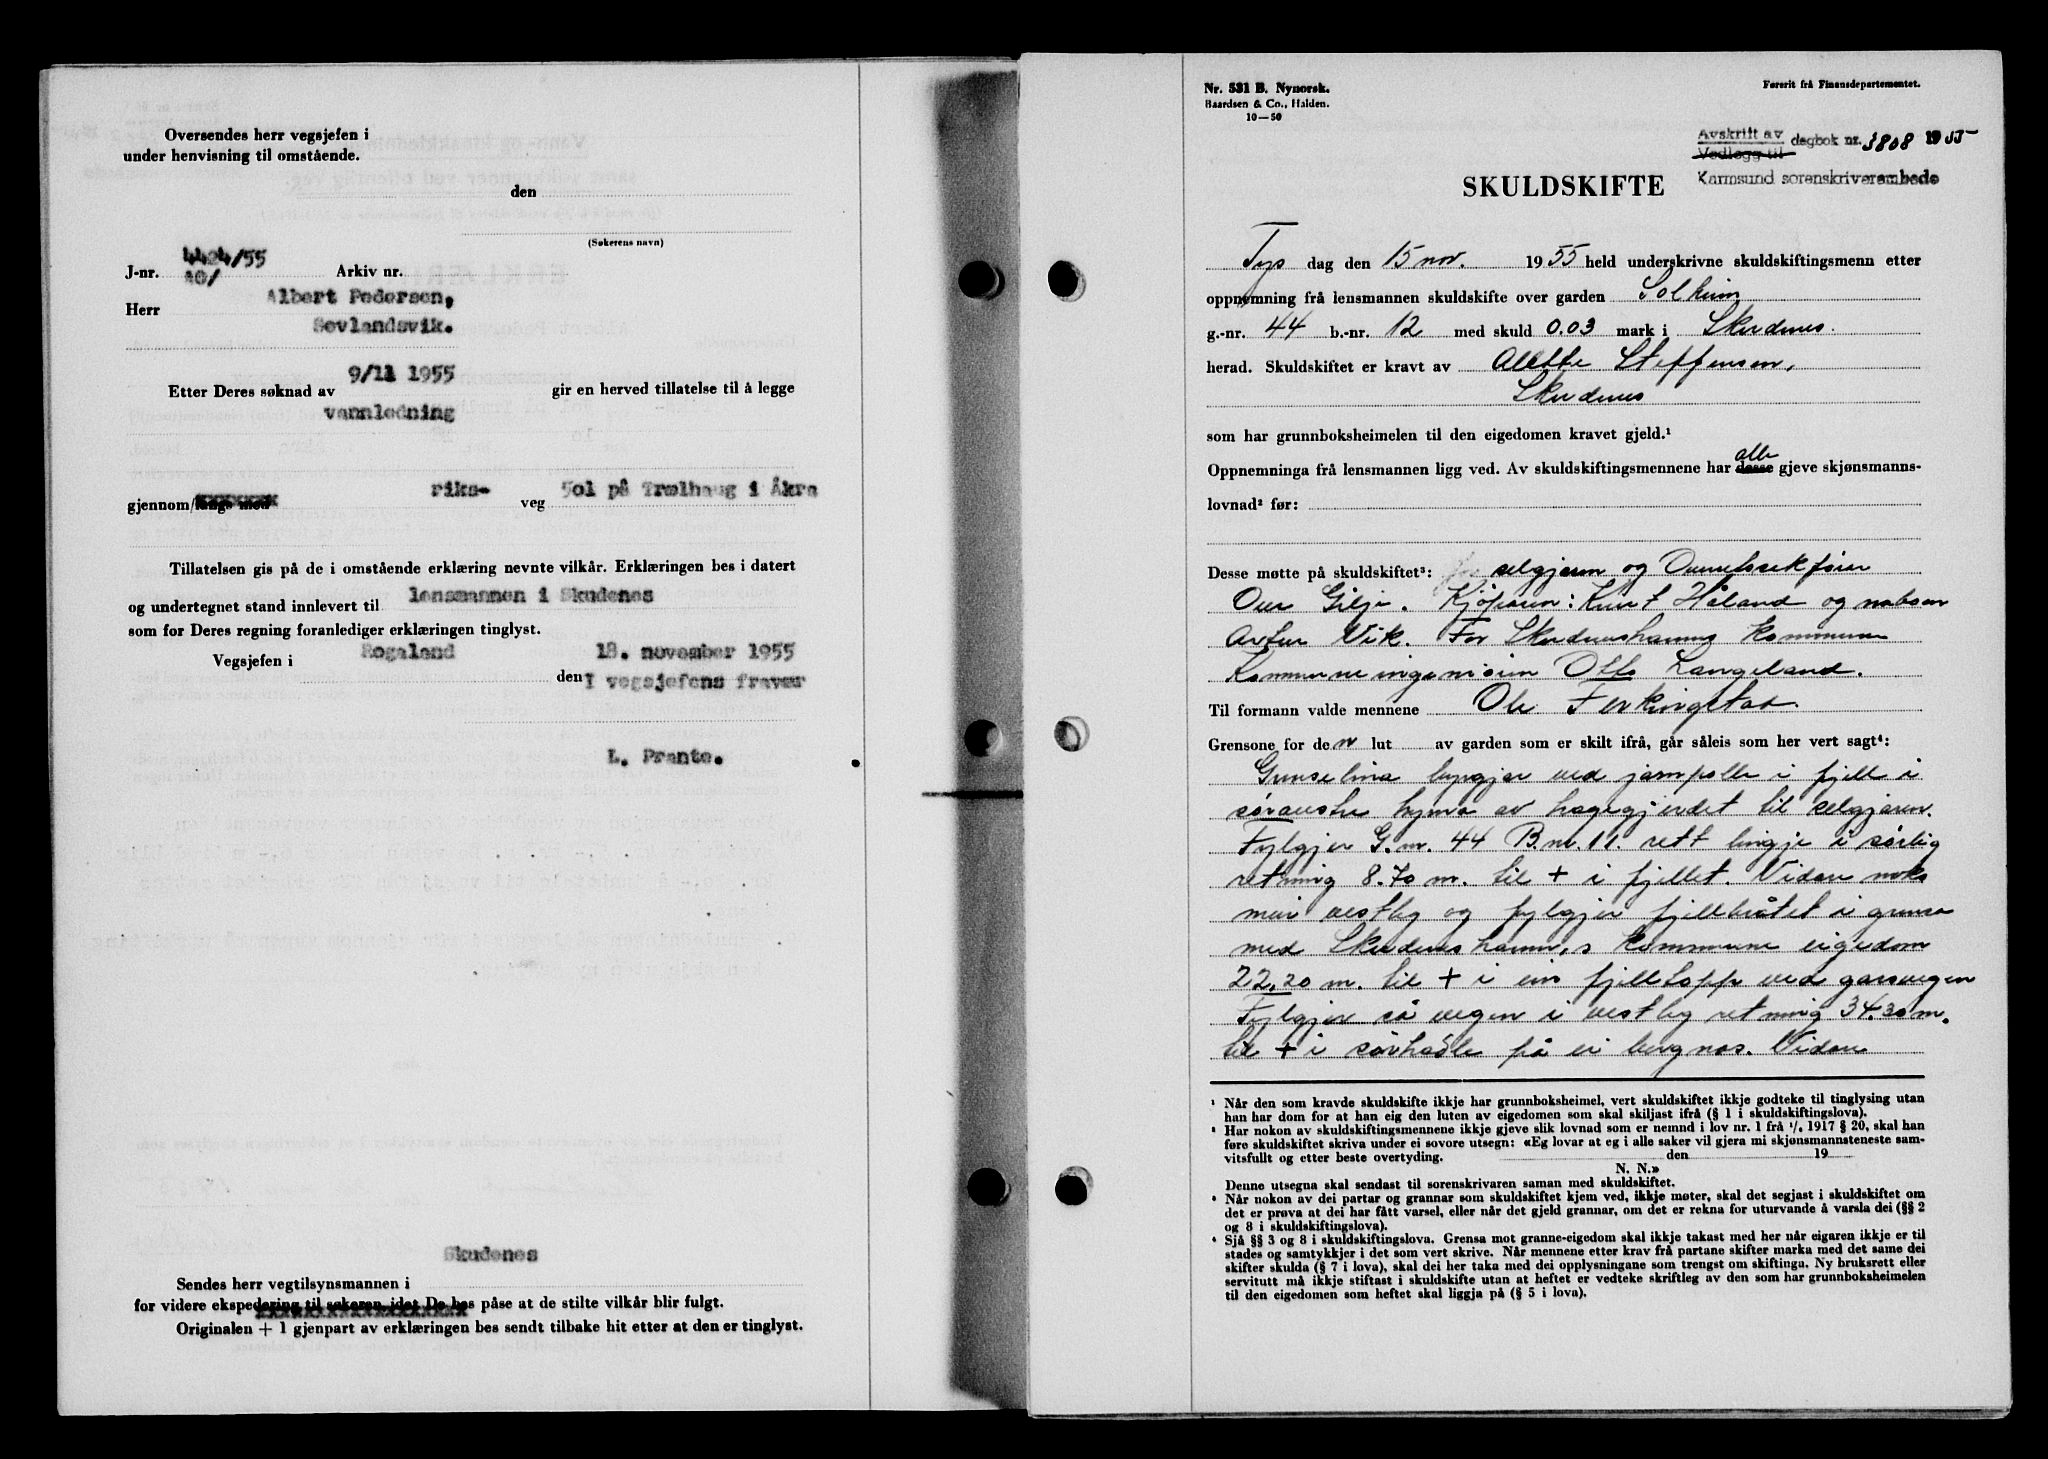 Oversendes herr vegsjefen i
under henvisning til omstående.
den
(Søkerens navn)
4424/55
J-nr. 40/ Arkiv nr.
Albert Pedersen,
Herr
Sevlandsvik.
9/11 1955
Etter Deres søknad av gir en herved tillatelse til å legge
vannledning
riks- 501 på Trælhaug i Åkra
gjennom/langs med veg
Tillatelsen gis på de i omstående erklæring nevnte vilkår. Erklæringen bes i datert
og undertegnet stand innlevert til lensmannen i Skudenes
som for Deres regning foranlediger erklæringen tinglyst.
Vegsjefen i Rogaland den 18. november 1955
I vegsjefens fravær
L. Prante.
Skudenes
Sendes herr vegtilsynsmannen i
for videre ekspedering til søkeren, idet De bes påse at de stilte vilkår blir fulgt.
Originalen + 1 gjenpart av erklæringen bes sendt tilbake hit etter at den er tinglyst.
Nr. 531 B. Nynorsk.
Baardsen & Co., Halden.
10—50
Førerit frå Finansdepartementet.
Avskrift av
Vedlegg til dagbok nr. 3808 1955
Karmsund sorenskriverembede
SKULDSKIFTE
Tys dag den 15 nov. 1955 held underskrivne skuldskiftingsmenn etter
oppnemning frå lensmannen skuldskifte over garden Solheim
g.-nr. 44 b.-nr. 12 med skuld 0.03 mark i Skudenes.
herad. Skuldskiftet er kravt av Alette Steffensen,
Skudenes
som har grunnboksheimelen til den eigedomen kravet gjeld.¹
alle
Oppnemninga frå lensmannen ligg ved. Av skuldskiftingsmennene har desse gjeve skjønsmanns-
lovnad² før:
Desse møtte på skuldskiftet³: for selgjaren og
Gilje. Kjøparen: Kurt Håland og naboen
Artur Vik. For Skudeneshamns kommune
Kommuneingeniøren Otto Langeland.
Til formann valde mennene Ole Ferkingstad.
Grensone for den lut av garden som er skilt ifrå, går såleis som her vert sagt⁴:
Grenselina bynjar ved jarnpolle i fjell i
søraustre hyrna av hagegjerdet til selgjaren.
Fylgjer G.nr. 44 B.nr. 11. rett lingje i sørlig
retning 8.70 m. til + i fjellet. Vidare noko
meir vestleg og fylgjer fjellbrotet i grensa
med Skudeneshamn,s kommune eigedom
22,20 m. til + i ein fjelltopp ved garsvegen
Fylgjer så vegen i vestleg retning 34.30 m.
til + i sørhalle på ei bergnos. Vidare
¹ Når den som kravde skuldskifte ikkje har grunnboksheimel, vert skuldskiftet ikkje godteke til tinglysing utan
han har dom for at han eig den luten av eigedomen som skal skiljast ifrå (§ 1 i skuldskiftingslova).
² Har nokon av skuldskiftingsmennene ikkje gjeve slik lovnad som er nemnd i lov nr. 1 frå 1/6 1917 § 20, skal han
føre skuldskiftet skriva under ei sovore utsegn: «Eg lovar at eg i alle saker vil gjera mi skjønsmannsteneste sam-
vitsfullt og etter beste overtyding. den 19
N. N.»
Denne utsegna skal sendast til sorenskrivaren saman med skuldskiftet.
³ Når nokon av dei partar og grannar som skuldskiftet kjem ved, ikkje møter, skal det segjast i skuldskiftet om
det er prøva at dei har fått varsel, eller når det gjeld grannar, om det er rekna for uturvande å varsla dei (§§ 2
og 8 i skuldskiftingslova).
⁴ Sjå §§ 3 og 8 i skuldskiftingslova. Grensa mot granne-eigedom skal ikkje takast med her når eigaren ikkje er til
stades og samtykkjer i det som vert skrive. Når mennene etter krav frå partane skifter marka med det same dei
skifter skulda (§ 7 i lova), skal dei her taka med dei opplysningane som trengst om skiftinga. Ny bruksrett eller
servitutt må ikkje stiftast i skuldskifte utan at heftet er vedteke skriftleg av den som har grunnboksheimelen
til den eigedomen som heftet skal liggja på (§ 5 i lova).